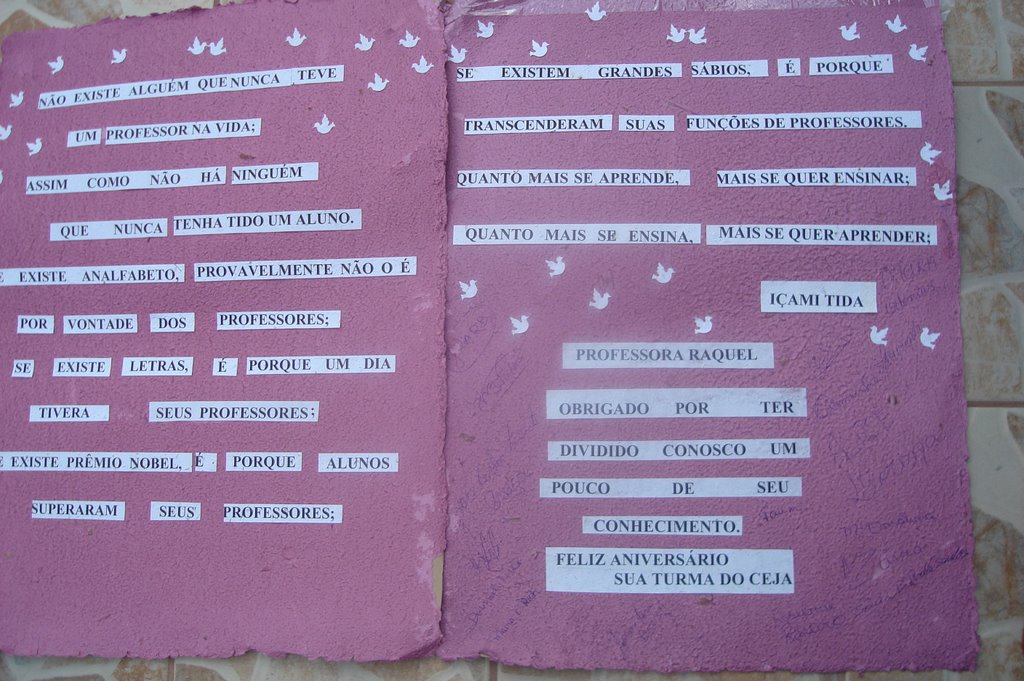 NÃO EXISTE ALGUÉM QUE NUNCA TEVE
UM PROFESSOR NA VIDA;
ASSIM COMO NÃO HÁ NINGUÉM
QUE NUNCA TENHA TIDO UM ALUNO.
E EXISTE ANALFABETO, PROVAVELMENTE NÃO O É
POR VONTADE DOS PROFESSORES;
SE EXISTE LETRAS, É PORQUE UM DIA
TIVERA SEUS PROFESSORES;
E EXISTE PRÊMIO NOBEL, É PORQUE ALUNOS
SUPERARAM SEUS PROFESSORES;
SE EXISTEM GRANDES SÁBIOS, É PORQUE
TRANSCENDERAM SUAS FUNÇÕES DE PROFESSORES.
QUANTO MAIS SE APRENDE, MAIS SE QUER ENSINAR;
QUANTO MAIS SE ENSINA, MAIS SE QUER APRENDER;
IÇAMI TIDA
PROFESSORA RAQUEL
OBRIGADO POR TER
DIVIDIDO CONOSCO UM
POUCO DE SEU
CONHECIMENTO.
FELIZ ANIVERSÁRIO
SUA TURMA DO CEJA